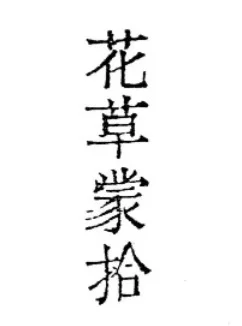 花草蒙拾